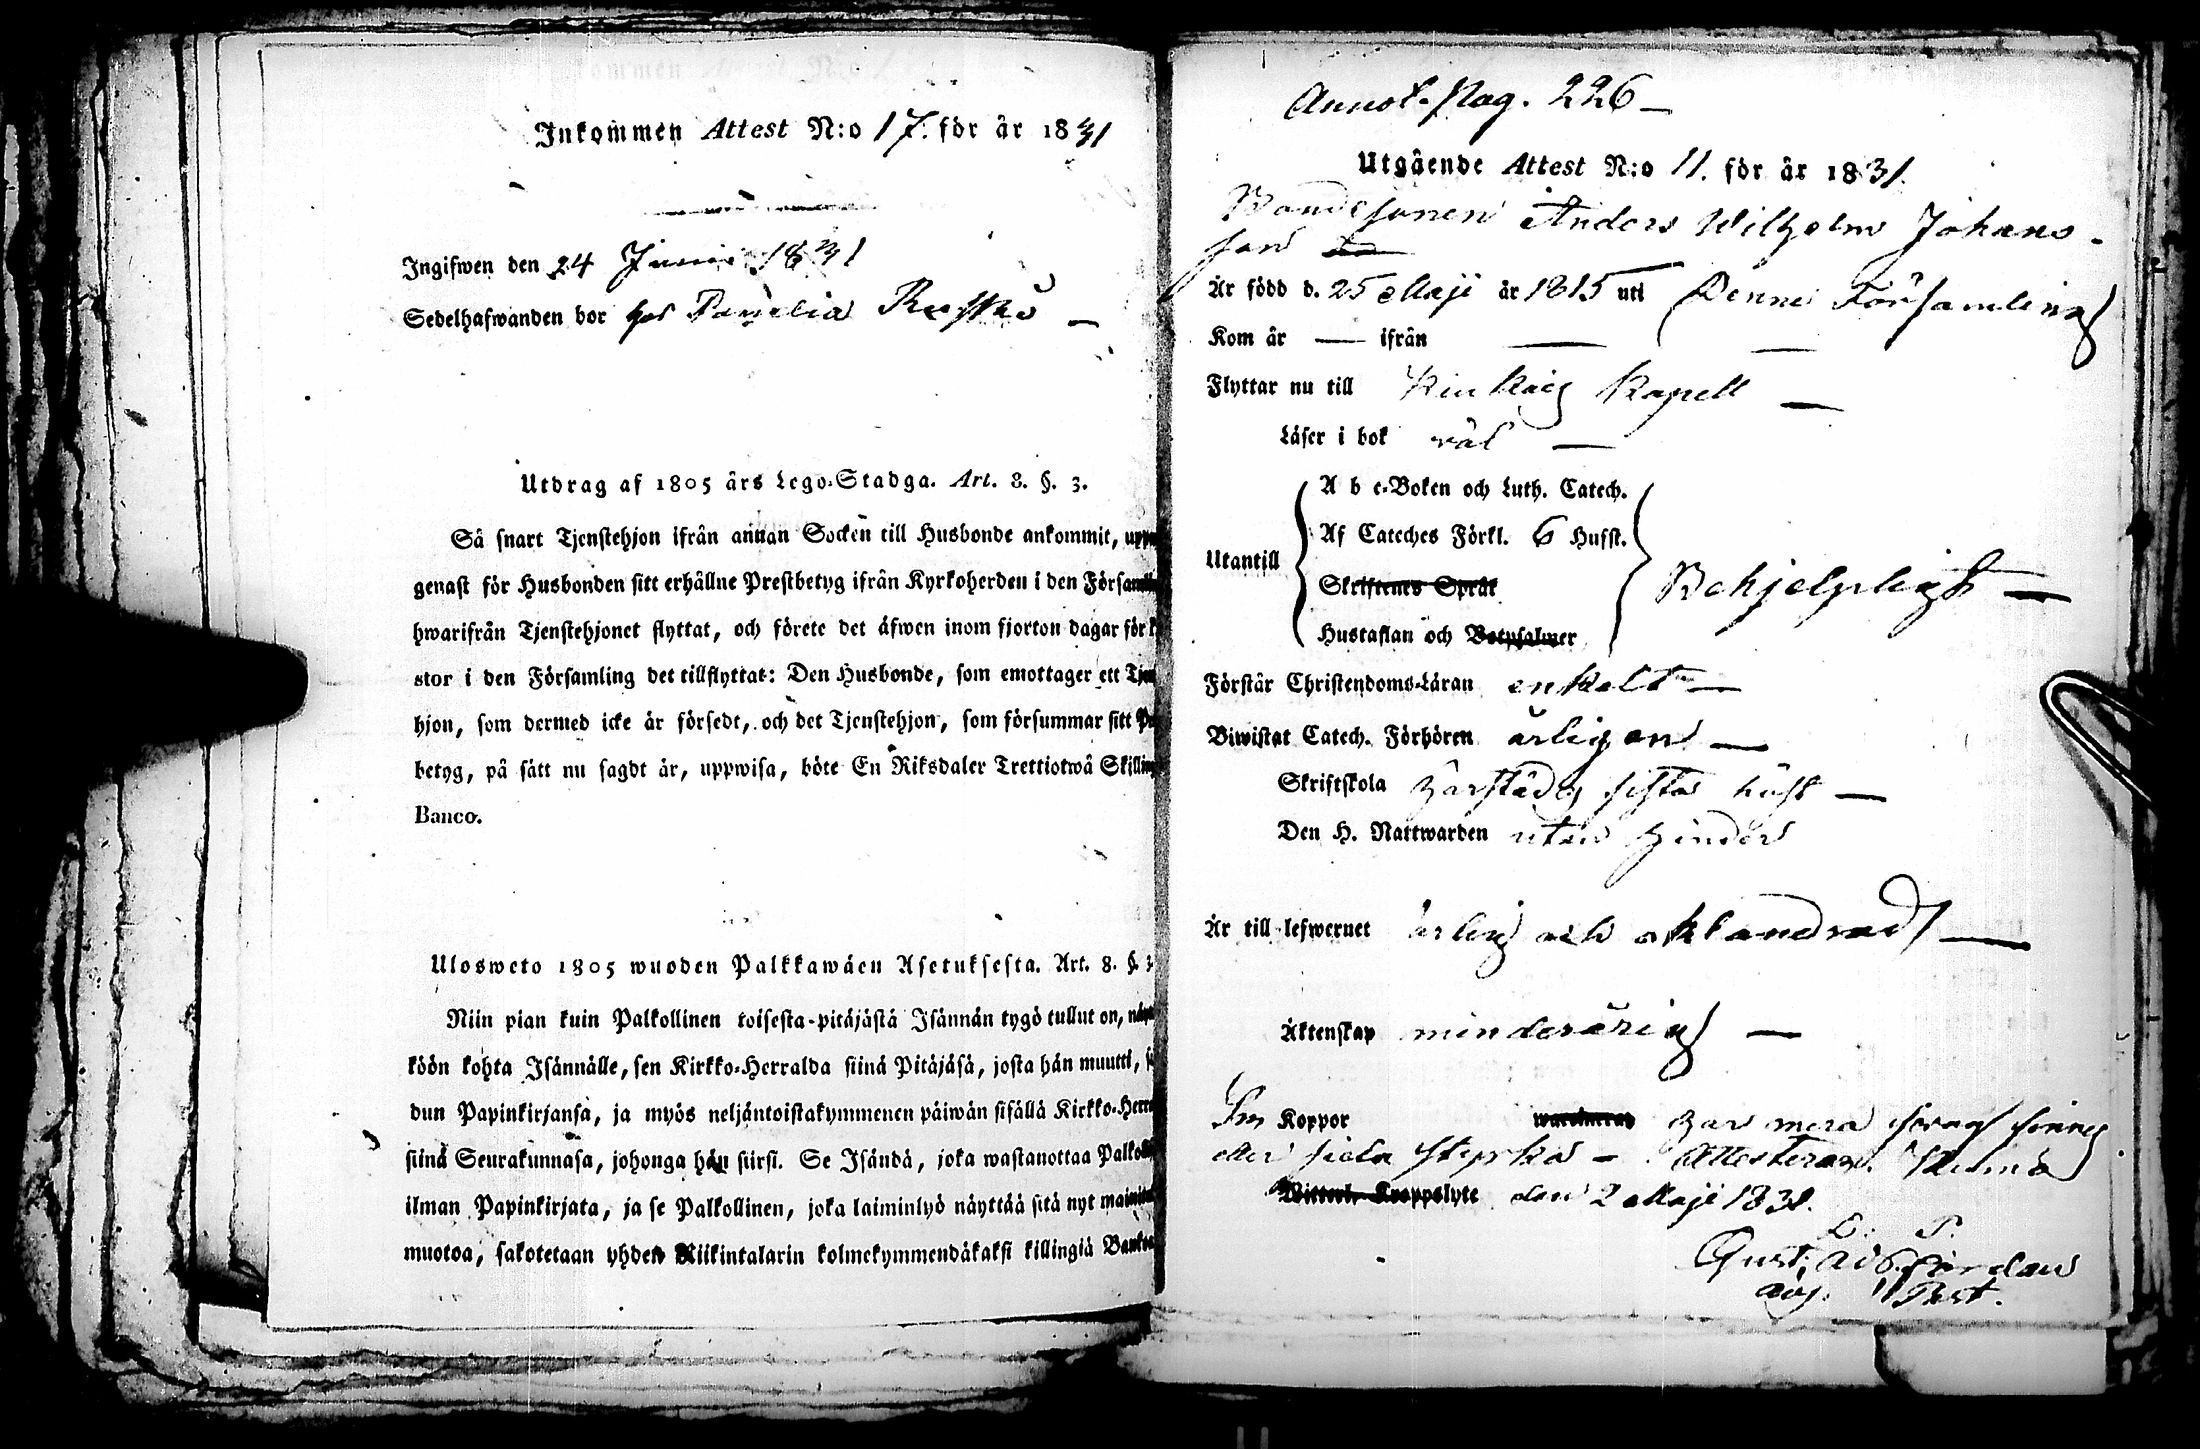 Inkommen Attest N:o 17. för år 1831
Ingifwen den 24 Junii 1831
Sedelhafwanden bor hos
Utdrag af 1805 års Lego-Stadga. Art. 8. §. 3.
Så snart Tjenstehjon ifrån annan Socken till Husbonde ankommit,
genast för Husbonden sitt erhållne Prestbetyg ifrån Kyrkoherden i den
hwarifrån Tjenstehjonet flyttat, och förete det äfwen inom fjorton dagar för
stor i den Församling det tillflyttat: Den Husbonde, som emottager ett
hjon, som dermed icke är försedt, och det Tjenstehjon, som försummar sitt
betyg, på sätt nu sagdt är, uppwisa, böte En Riksdaler Trettiotwå
Banco.
Ulosweto 1805 wuoden Palkkawäen Asetuksesta. Art. 8. §. 3
Niin pian kuin Palkollinen toisesta-pitäjästä Isännän tygö tullut on,
köön kohta Isännälle, sen Kirkko-Herralda siinä Pitäjäsä, josta hän muutti,
dun Papinkirjansa, ja myös neljäntoistakymmenen päiwän sisällä
siinä Seurakunnasa, johonga hän siirsi. Se Isändä, joka wastanottaa
ilman Papinkirjata, ja se Palkollinen, joka laiminlyö näyttää sitä nyt
muotoa, sakotetaan yhden Riikintalarin kolmekymmendäkaksi killingiä
Annot. Pag. 226
Utgående Attest N:o 11. för år 1831.
Bondesonen Anders Wilhelm Johans-
son
Är född d. 25 Maji år 1815 uti Denne Församling
Kom år — ifrån —
Flyttar nu till Kapell
Läser i bok väl
A b c-Boken och Luth. Catech.
Af Cateches Förkl. 6 Hufst.
Utantill
Skriftenes Språk
Behjelpligt
Hustaflan och Botpsalmer
Förstår Christendoms-Läran enkelt
Biwistat Catech. Förhören årligen
Skriftskola härstädes sista höst
Den H. Nattwarden utan hinder
Är till lefwernet ärlig och oklandrad
Äktenskap minderårig
Koppor har mera svag sinnes
eller siäla styrka - Attesteras. Kumo
den 2 Maji 1831.
L. P.
Gust. Ad.
adj. Past.